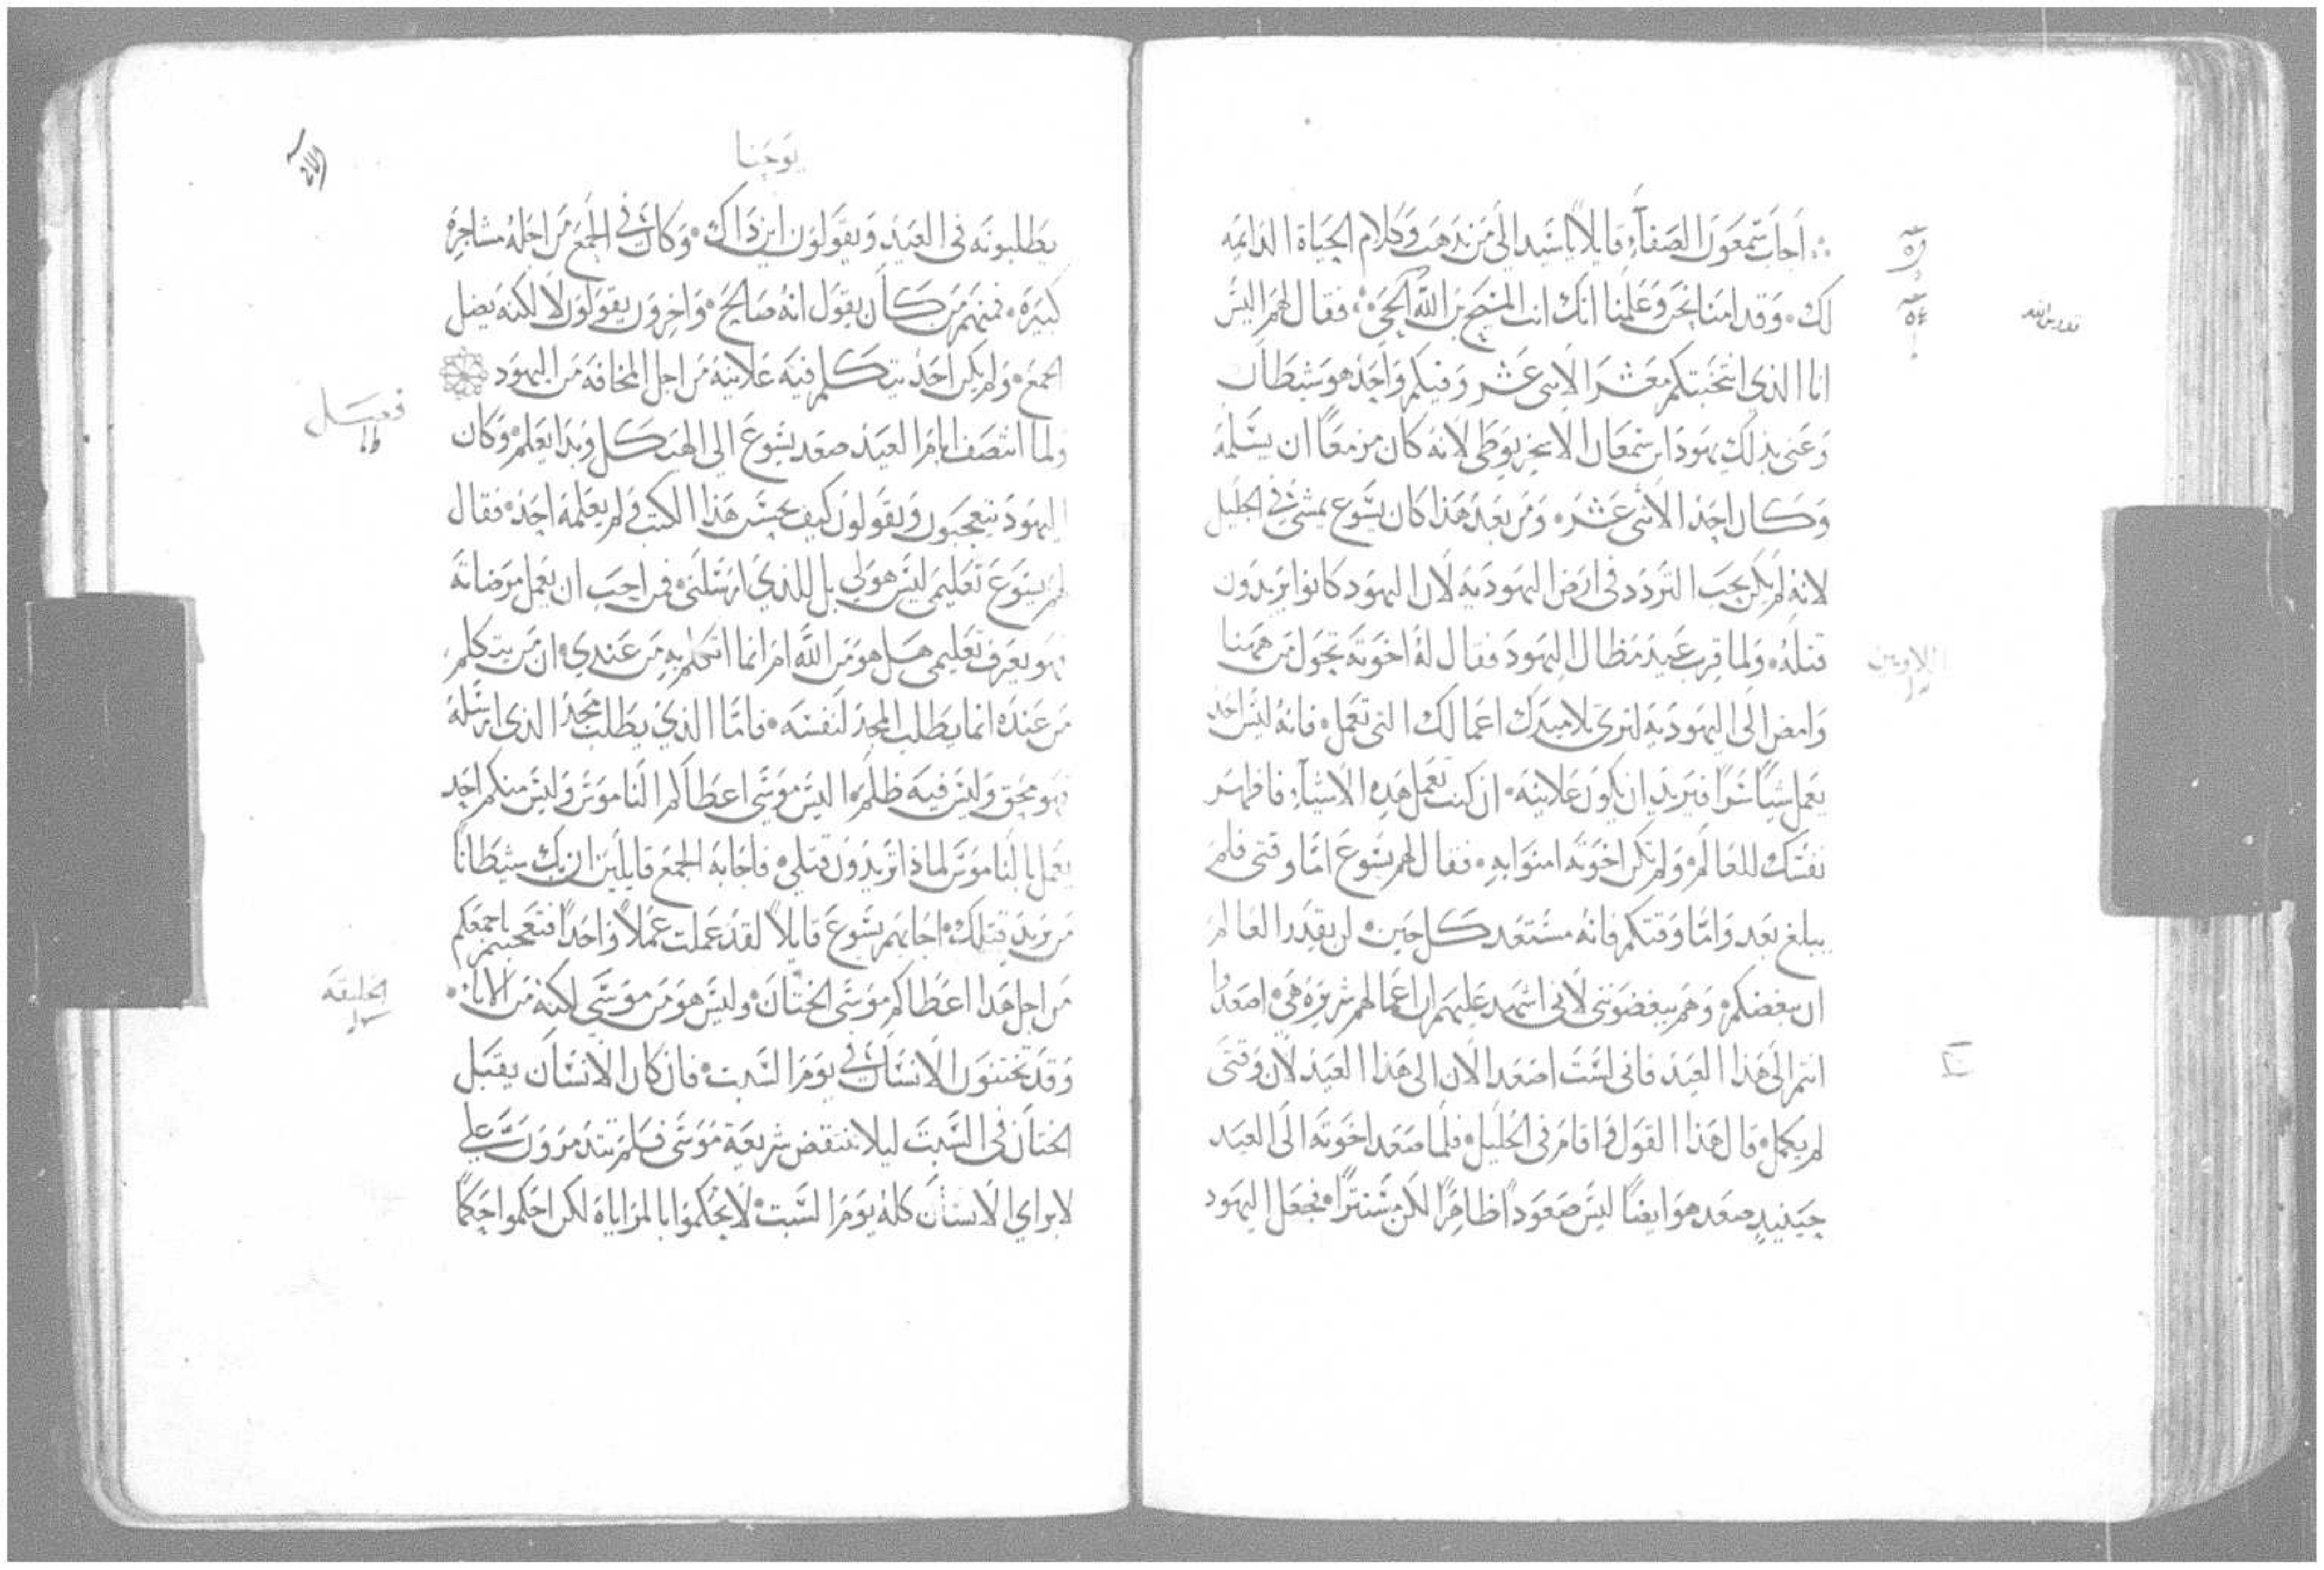 اجاب سمعون الصفا قايلا يا سيد الى من نذهب وكلام الحياة الدايمه
لك وقد امنا نحن وعلمنا انك انت المسيح بن الله الحي فقال لهم اليس
انا الذي انتخبتكم معشر الاثنى عشر وفيكم واحد هو شيطان
وعنى بذلك يهودا بن سمعان الاسخريوطى لانه كان مزمعا ان يسلمه
وكان احد الاثنى عشر ومن بعد هذا كان يسوع يمشى في الجليل
لانه لم يكن يحب التردد فى ارض اليهوديه لان اليهود كانوا يريدون
قتله ولما قرب عيد مظال اليهود فقال له اخوته تحول من ههنا
وامض الى اليهوديه لترى تلاميذك اعمالك التى تعمل فانه ليس احد
يعمل شيا سرا فيريد ان يكون علانيه ان كنت تعمل هذه الاشياء فاظهر
نفسك للعالم ولم تكن اخوته امنوا به فقال لهم يسوع اما وقتى فلم
يبلغ بعد واما وقتكم فانه مستعد كل حين لن يقدر العالم
ان يبغضكم وهم يبغضوننى لانى اشهد عليهم ان اعمالهم شريره هى اصعدوا
انتم الى هذا العيد فانى لست اصعد الان الى هذا العيد لان وقتى
لم يكمل قال هذا القول واقام فى الجليل فلما صعد اخوته الى العيد
حينيد صعد هو ايضا ليس صعودا ظاهرا لكن مستترا فجعل اليهود
يوحنا
يطلبونه فى العيد ويقولون اين ذاك وكان في الجمع من اجله مشاجره
كبيره فمنهم من كان يقول انه صالح واخرون يقولون لا لكنه يضل
الجمع ولم يكن احد يتكلم فيه علانيه من اجل المخافه من اليهود
فصل
ولما انتصف ايام العيد صعد يسوع الى الهيكل وبدا يعلم وكان
اليهود يتعجبون ويقولون كيف يحسن هذا الكتب ولم يعلمه احد فقال
لهم يسوع تعليمى ليس هو لى بل للذي ارسلنى فمن احب ان يعمل مرضاته
فهو يعرف تعليمى هل هو من الله ام انما اتكلم به من عندي ان من يتكلم
من عنده انما يطلب المجد لنفسه فاما الذي يطلب مجد الذى ارسله
فهو محق وليس فيه ظلم اليس موسى اعطاكم الناموس وليس منكم احد
يعمل بالناموس لماذا تريدون قتلى فاجابه الجمع قايلين ان بك شيطانا
من يريد قتلك اجابهم يسوع قايلا لقد عملت عملا واحدا فتعجبتم باجمعكم
من اجل هذا اعطاكم موسى الختان وليس هو من موسى لكنه من الابا
الخليقه
وقد تختنون الانسان في يوم السبت فان كان الانسان يقبل
الختان فى السبت ليلا تنتقض شريعة موسى فلم تتدمرون على
لابراي الانسان كله يوم السبت لا تحكموا بالمراياة لكن احكموا حكما